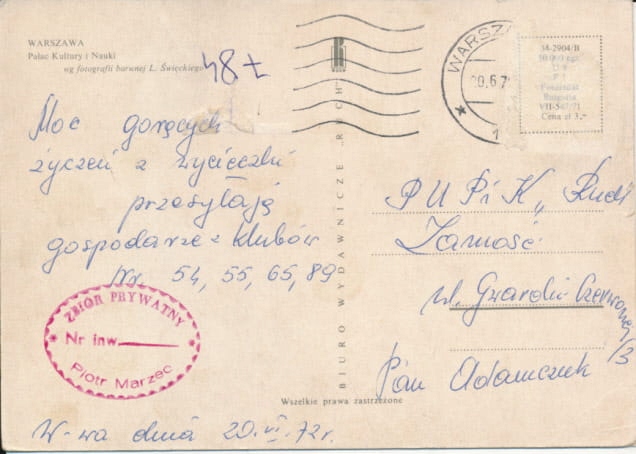 WARSZAWA
Pałac Kultury i Nauki
wg fotografii barwnej L. Święckiego
48 zł
Moc gorących
życzeń z wycieczki
przesyłają
gospodarze z klubów
Nr. 54, 55, 65, 89
ZBIÓR PRYWATNY
Nr inw.
Piotr Marzec
W-wa dnia 20.VI.72r.
BIURO WYDAWNICZE „RUCH"
Wszelkie prawa zastrzeżone
WARSZ
20.6.7
1
34-2904/B
VII-567/71
Cena zł 3,-
PUPiK „Ruch
Zamość
ul. Gwardii Czerwonej
/3
Pan Adamczuk